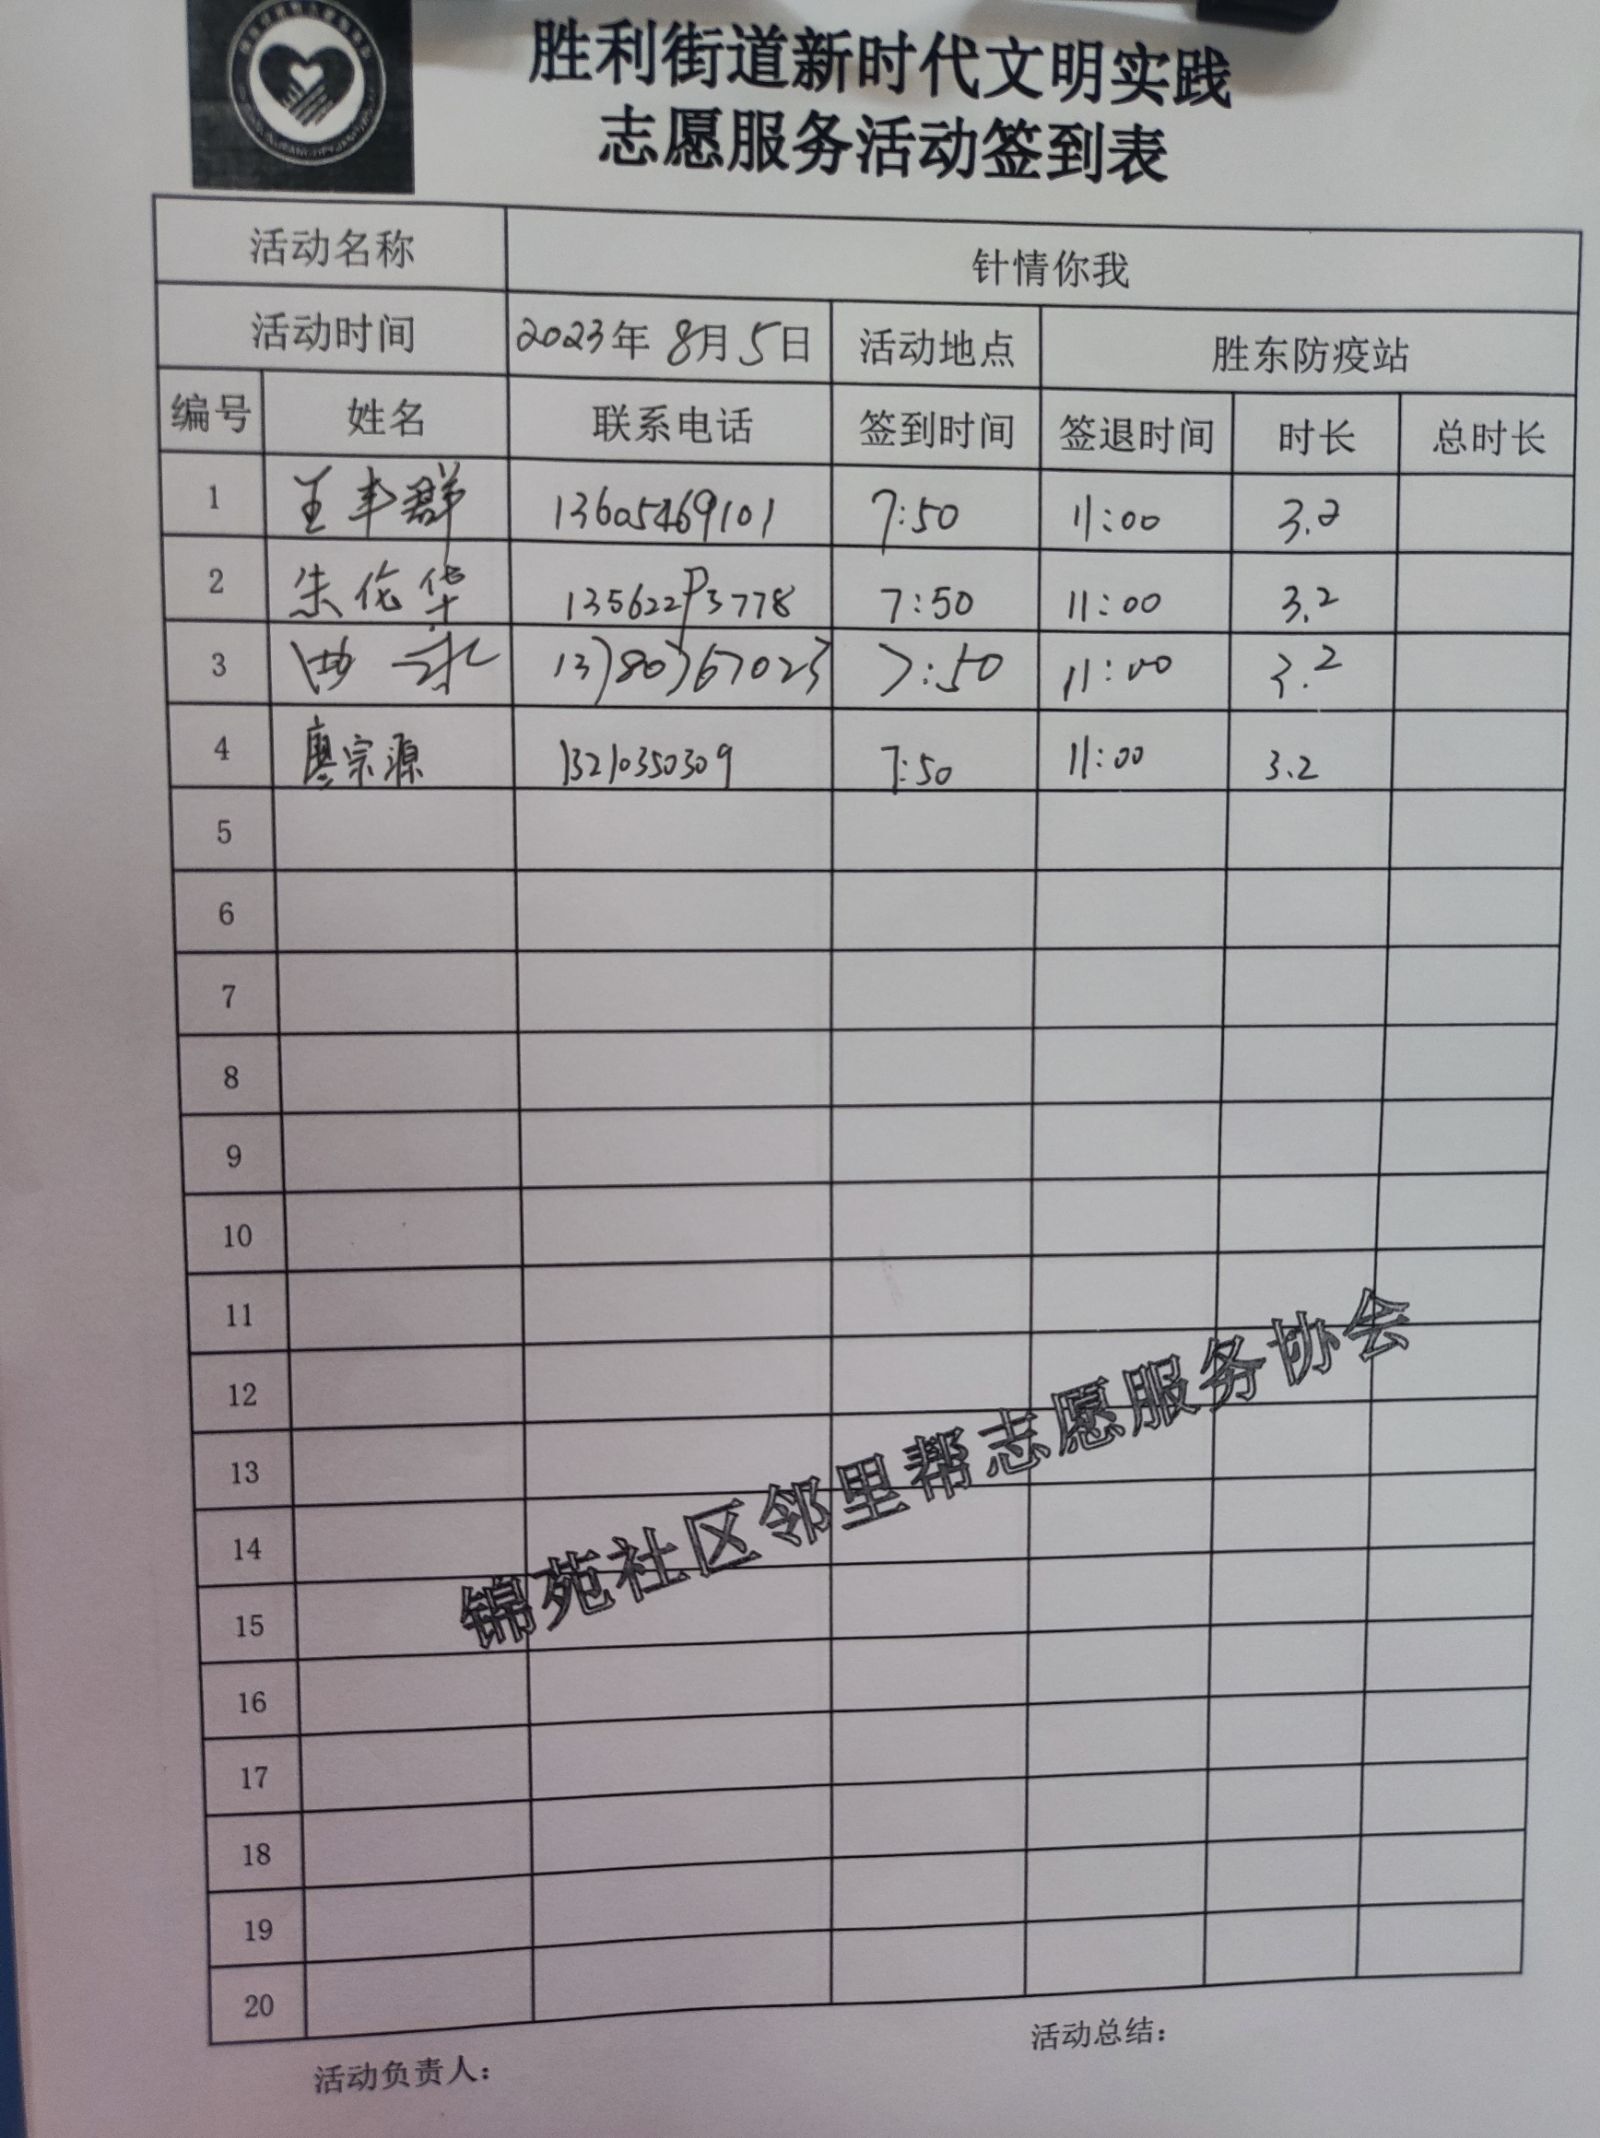 胜利街道新时代文明实践
志愿服务活动签到表
活动名称 针情你我
活动时间 2023年 8月5日 活动地点 胜东防疫站
编号 姓名 联系电话 签到时间 签退时间 时长 总时长
1 王丰群 13605469101 7:50 11:00 3.2
2 朱伦华 135622P3778 7:50 11:00 3.2
3 13780767023 7:50 11:00 3.2
4 廖宗源 13210350309 7:50 11:00 3.2
5
6
7
8
9
10
11
12
13
14
15
16
17
18
19
20
锦苑社区邻里帮志愿服务协会
活动负责人： 活动总结：